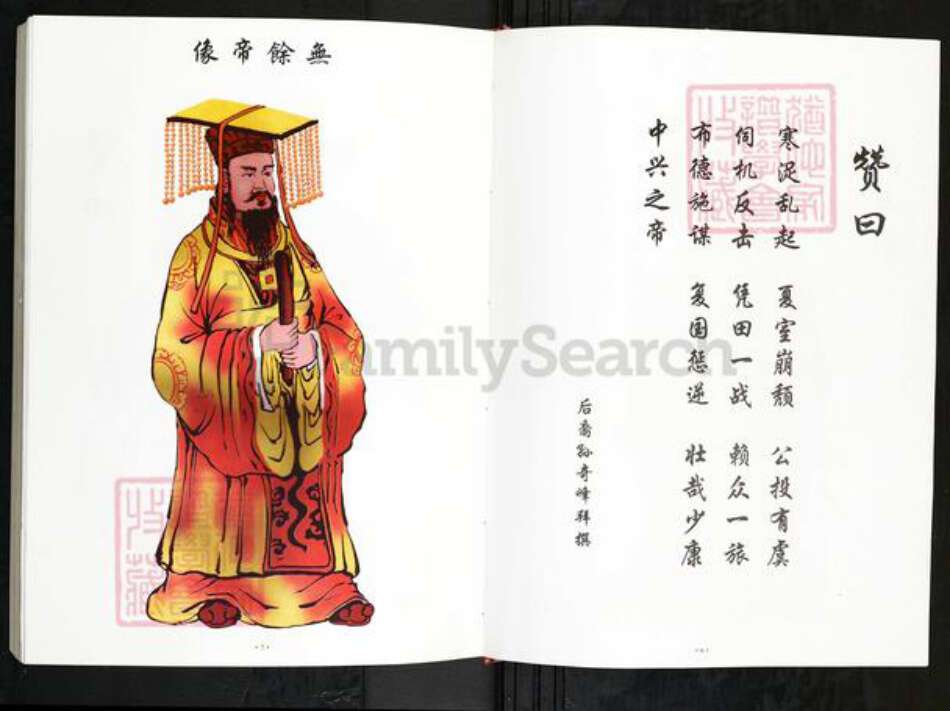 無餘帝像
赞曰
寒浞乱起 夏室崩颓 公投有虞
伺机反击 凭田一战 赖众一旅
布德施谋 复国惩逆 壮哉少康
中兴之帝
后裔孙奇峰拜撰
猶他家
譜學會
收藏
FamilySearch